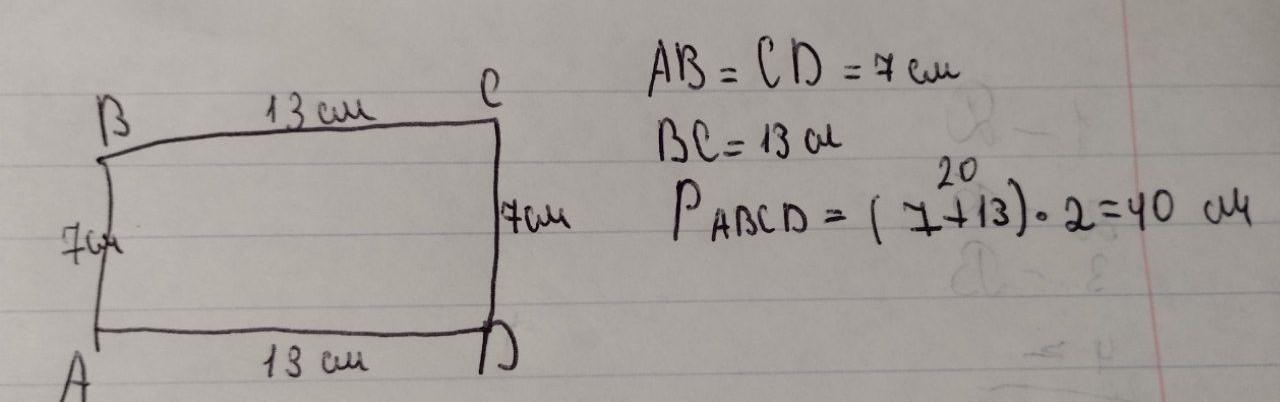 B 13 см C
AB = CD = 7 см
BC = 13 см
20
P ABCD = ( 7+13) · 2 = 40 см
7см
7см
A 13 см D